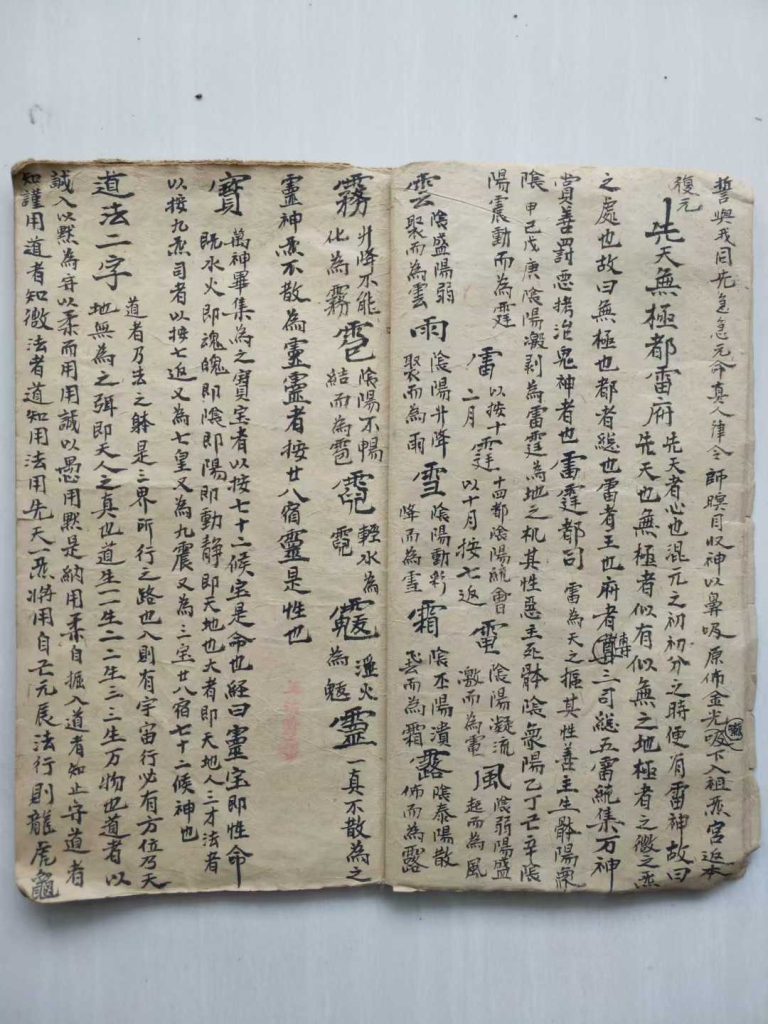 誓與我同先急急元命真人律令師瞑目收神以鼻吸原佈金光吸下入祖炁宮返本
復元
先天無極都雷府 先天者心也混元之初初分之時便有雷神故曰
先天也無極者似有似無之地極者之微之炁
之處也故曰無極也都者總也雷者王也府者專三司總五雷統集万神
賞善罰惡拷治鬼神者也雷霆都司 雷為天之樞其性善主生骵陽氣
陰甲己戊庚陰陽凝剥為雷霆為地之机其性惡主死骵陰氣陽乙丁亡辛陰
陽震動而為霆 雷 以按十二月 霆 十四都陰陽 以十月按七返 電 陰陽凝流激而為電 風 陰弱陽盛起而為風
雲 陰盛陽弱聚而為雲 雨 陰陽升降聚而為雨 雪 陰陽動降而為雪 霜 陰丕陽潰飛而為霜 露 陰泰陽散佈而為露
霧 升降不能化為霧 雹 陰陽不暢結而為雹 輕水為 溫火為 靈 一真不散為之
靈神炁不散為靈靈者按廿八宿靈是性也
寳 萬神畢集為之寳宝者以按七十二候宝是命也経曰靈宝即性命
既水火即魂魄即陰即陽即動静即天地也大者即天地人三才法者
以按九炁司者以按七返又為七皇又為九震又為三宝廿八宿七十二候神也
道法二字 道者乃法之骵是三界所行之路也入則有宇宙行必有方位乃天
地無為之弭即天人之真也道生一一生二二生三三生万物也道者以
誠入以黙為守以柔而用用誠以愚用黙是納用柔自掘入道者知止守道者
知謹用道者知微法者道知用法用先天一炁將用自亡元辰法行則龍虎龜